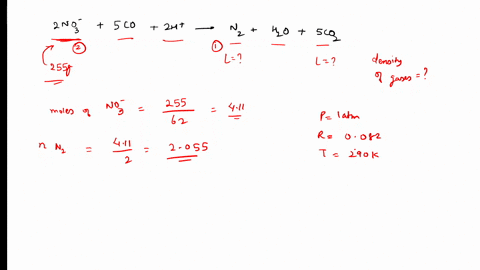 2NO₃⁻ + 5CO + 2H⁺ → N₂ + H₂O + 5CO₂
② ①
255g L=? L=?
density of gases = ?
moles of NO₃⁻ = 255/62 = 4.11
n N₂ = 4.11/2 = 2.055
P = 1atm
R = 0.082
T = 290K